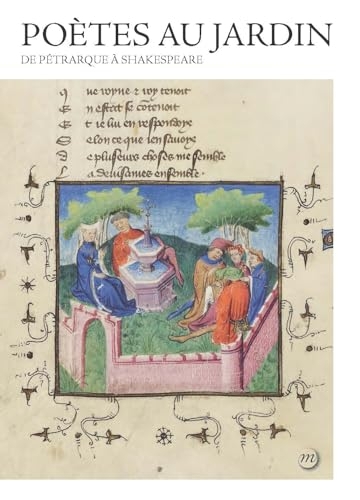 POÈTES AU JARDIN
DE PÉTRARQUE À SHAKESPEARE
Q ue voyne & voy tenoit
E n estat se cōtenoit
E t ie lui en respondoye
S elon ce que ien savoye
D e plusieurs choses me semble
L a devisames ensemble
m